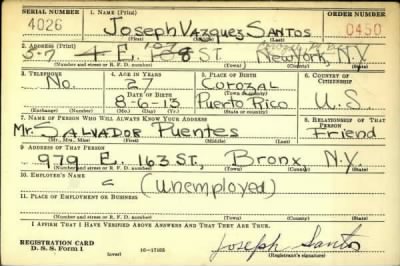 SERIAL NUMBER 1. NAME (Print) ORDER NUMBER
4026 Joseph Vazquez Santos 0450
(First) (Middle) (Last)
2. ADDRESS (Print)
ST. New York, N.Y.
(Number and street or R. F. D. number) (Town) (County) (State)
3. TELEPHONE 4. AGE IN YEARS 5. PLACE OF BIRTH 6. COUNTRY OF CITIZENSHIP
No. 27 Corozal
DATE OF BIRTH (Town or county)
8-6-13 Puerto Rico U.S.
(Exchange) (Number) (Mo.) (Day) (Yr.) (State or country)
7. NAME OF PERSON WHO WILL ALWAYS KNOW YOUR ADDRESS 8. RELATIONSHIP OF THAT PERSON
Mr. Salvador Puentes Friend
(Mr., Mrs., Miss) (First) (Middle) (Last)
9. ADDRESS OF THAT PERSON
979 E. 163 ST., Bronx, N.Y.
(Number and street or R. F. D. number) (Town) (County) (State)
10. EMPLOYER'S NAME
(Unemployed)
11. PLACE OF EMPLOYMENT OR BUSINESS
(Number and street or R. F. D. number) (Town) (County) (State)
I AFFIRM THAT I HAVE VERIFIED ABOVE ANSWERS AND THAT THEY ARE TRUE.
REGISTRATION CARD
D. S. S. Form 1 (over) 16-17105 Joseph Santos
(Registrant's signature)